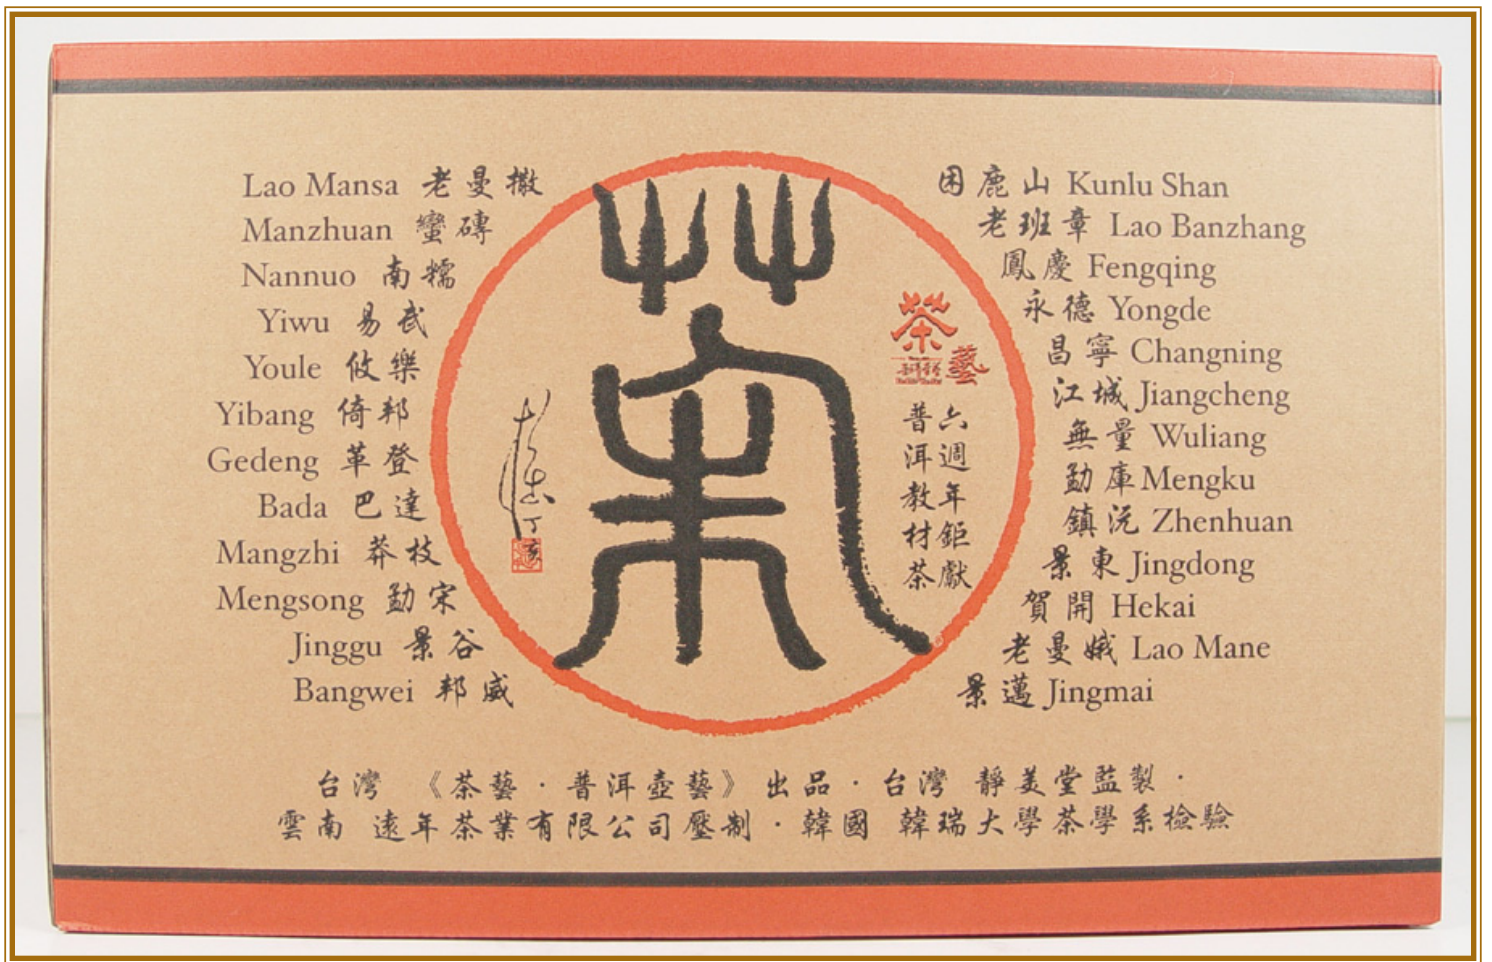 Lao Mansa 老曼撒
Manzhuan 蠻磚
Nannuo 南糯
Yiwu 易武
Youle 攸樂
Yibang 倚邦
Gedeng 革登
Bada 巴達
Mangzhi 莽枝
Mengsong 勐宋
Jinggu 景谷
Bangwei 邦威
丁亥
茶
茶藝
六週年鉅獻
普洱教材茶
困鹿山 Kunlu Shan
老班章 Lao Banzhang
鳳慶 Fengqing
永德 Yongde
昌寧 Changning
江城 Jiangcheng
無量 Wuliang
勐庫 Mengku
鎮沅 Zhenhuan
景東 Jingdong
賀開 Hekai
老曼娥 Lao Mane
景邁 Jingmai
台灣 《茶藝·普洱壺藝》 出品·台灣 靜美堂監製·
雲南 遠年茶業有限公司壓制·韓國 韓瑞大學茶學系檢驗